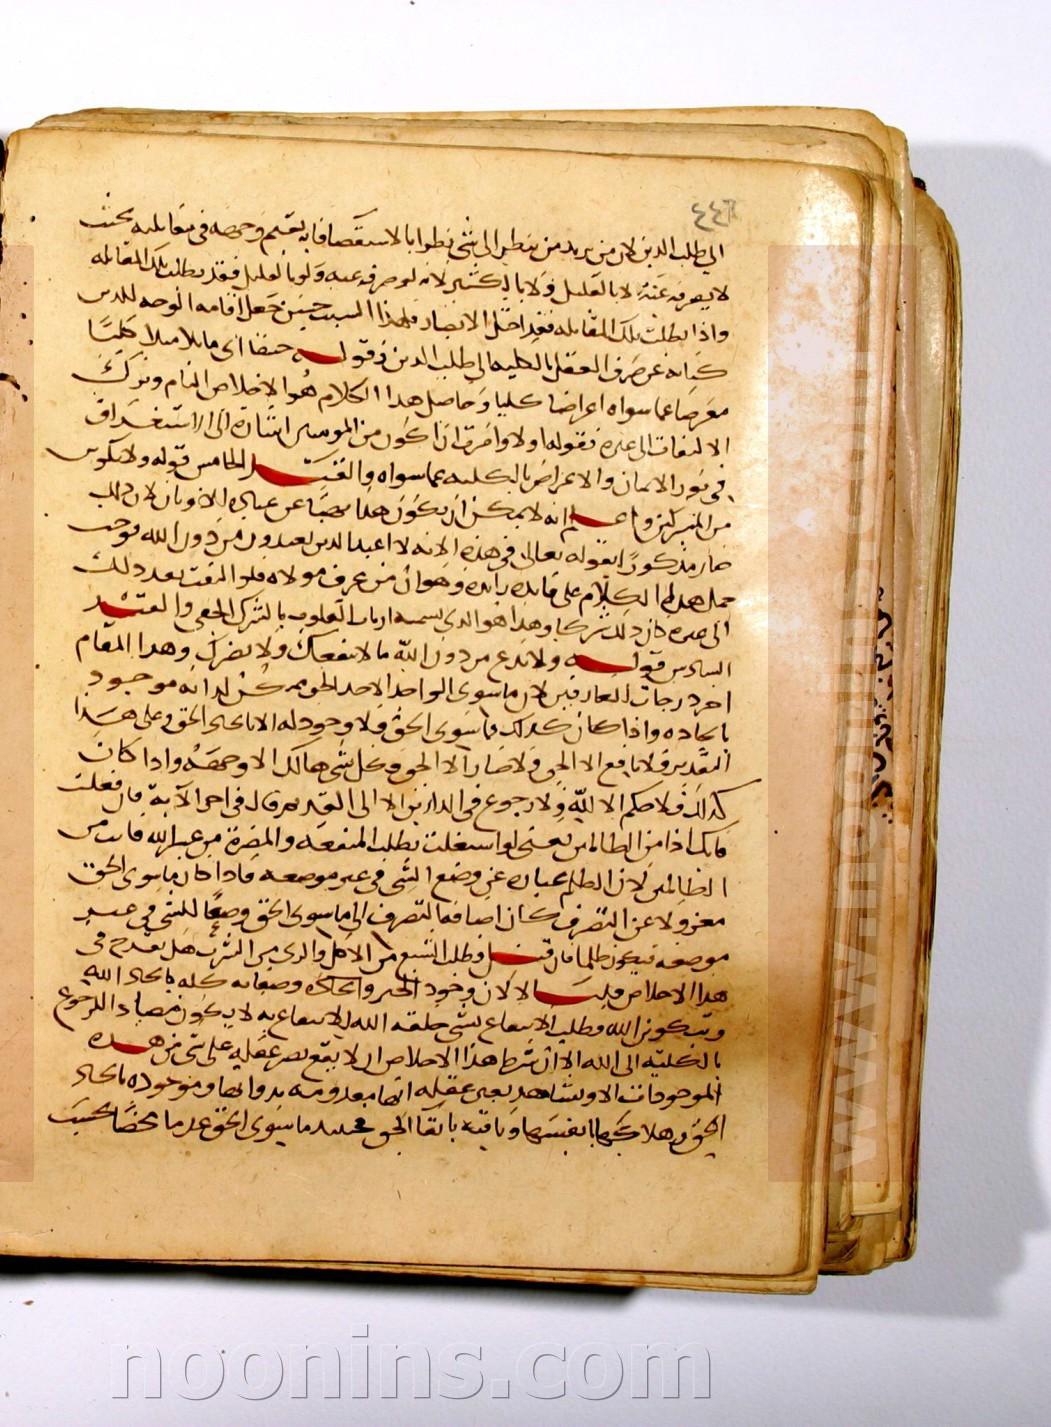 ٤٤٦
الى طلب الدين لان من يريد من ينظر الى شى نظرا بالاستقصا فانه يقيم وجهه فى مقابلته بحيث
لا يصرفه عنه لا بالقليل ولا بالكثير لانه لو صرفه عنه ولو بالقليل فقد بطلت تلك المقابله
واذا بطلت تلك المقابله فقد اختل الابصار فلهذا السبب حسن جعل اقامه الوجه للدين
كنايه عن صرف العقل بالكليه الى طلب الدين وقوله حنيفا اى مايلا ميلا كليا
معرضا عما سواه اعراضا كليا وحاصل هذا الكلام هو الاخلاص التام وترك
الالتفات الى غيره فقوله اولا وامرت ان اكون من المومنين اشارة الى الاستغراق
فى نور الايمان والاعراض بالكليه عما سواه والقيد الخامس قوله ولا تكونن
من المشركين واعلم انه لا يمكن ان يكون هذا نهيا عن عبادة الاوثان لان ذلك
صار مذكورا بقوله تعالى فى هذه الايه لا اعبد الذين تعبدون من دون الله فوجب
حمل هذا الكلام على فايده زايدة وهو ان من عرف مولاه فلو التفت بعد ذلك
الى غيره كان ذلك شركا وهذا هو الذي يسميه ارباب القلوب بالشرك الخفى والقيد
السادس قوله ولا تدع من دون الله ما لا ينفعك ولا يضرك وهذا المقام
اخر درجات العارفين لان ما سوى الواحد الاحد الحق ممكن لذاته موجود
بايجاده واذا كان كذلك فما سوى الحق فلا وجود له الا بايجاد الحق وعلى هذا
التقدير فلا نافع الا الحق ولا ضار الا الحق وكل شى هالك الا وجهه واذا كان
كذلك فلا حكم الا لله ولا رجوع فى الدارين الا الى الله ثم قال فى اخر الآية فان فعلت
فانك اذا من الظالمين يعنى لو اشتغلت بطلب المنفعه والمضرة من غير الله فانت من
الظالمين لان الظلم عباره عن وضع الشى فى غير موضعه فاذا كان ما سوى الحق
معزولا عن التصرف كان اضافة التصرف الى ما سوى الحق وضعا للشى فى غير
موضعه فيكون ظلما فان قيل فطلب الشبع من الاكل والرى من الشرب هل يقدح فى
هذا الاخلاص قلنا لا لان وجود الخبز وصفاته كله بايجاد الله
وتكوينه وطلب الانتفاع بشى خلقه الله للانتفاع به لا يكون مضادا للرجوع
بالكليه الى الله الا ان شرط هذا الاخلاص ان لا يقع بصر عقله على شى من هذه
الموجودات الا ويشاهد بعين عقله انها معدومه بذواتها وموجوده بايجاد
الحق وهالكه بانفسها وباقيه بابقا الحق فحينيذ ما سوى الحق عدما محضا بحسب
noonins.com